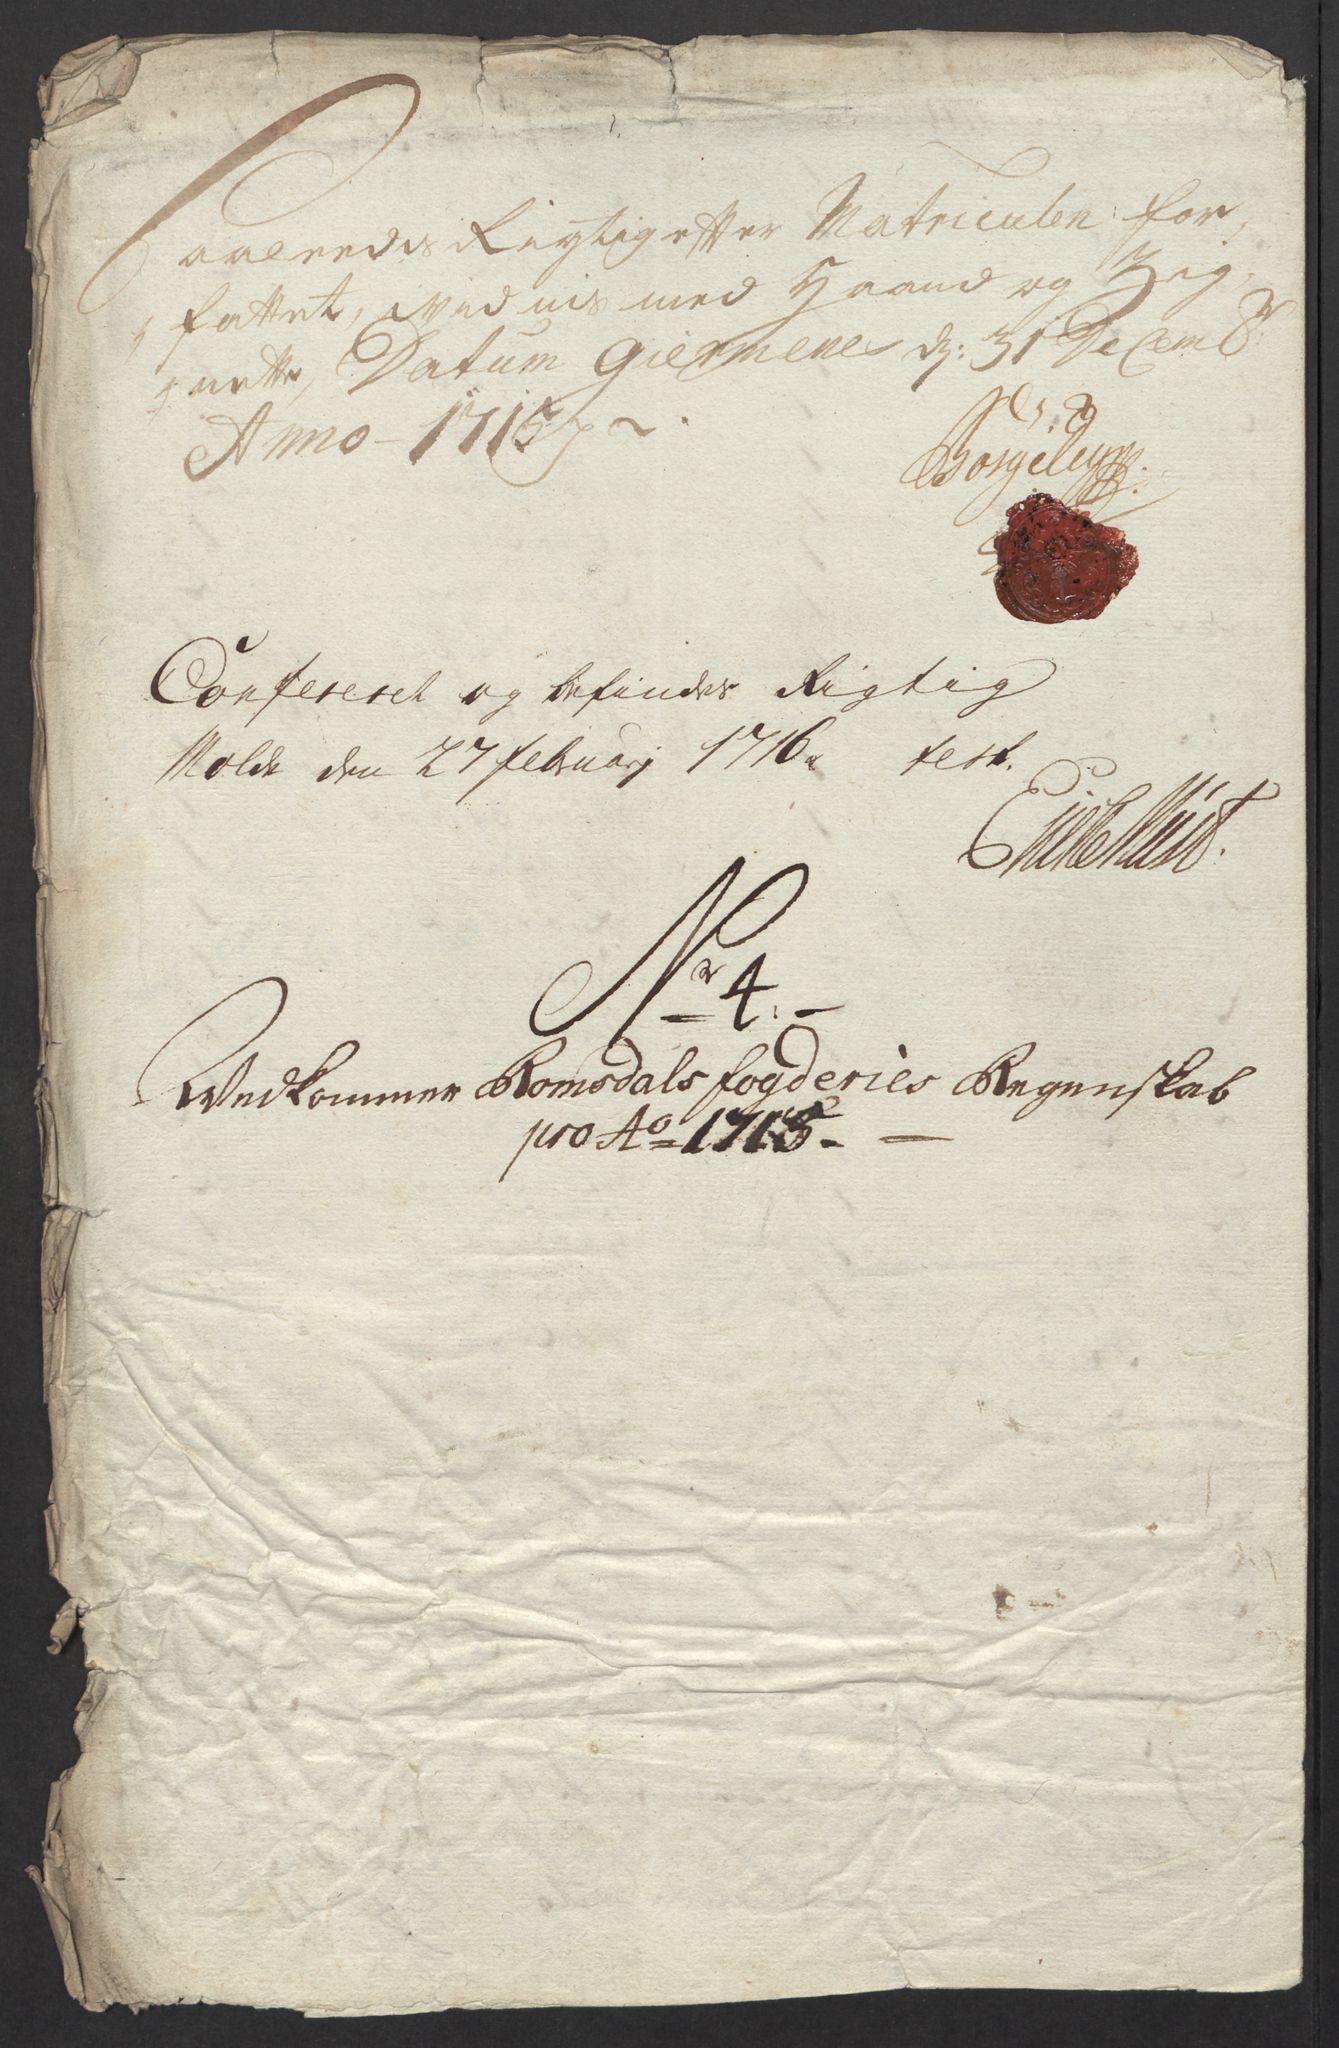 Saaleedis Rigtig etter Matriculen for,
fattet, vidnis med Haand og Zig,
nette, Datum Giermenes d: 31 Decemb:
Anno 1715
Confereret og befindes Rigtig
Molde den 27 februarj 1716 test.
Nr 4.
Vedkommer Romsdals fogderies Regenskab
pro Ao 1715